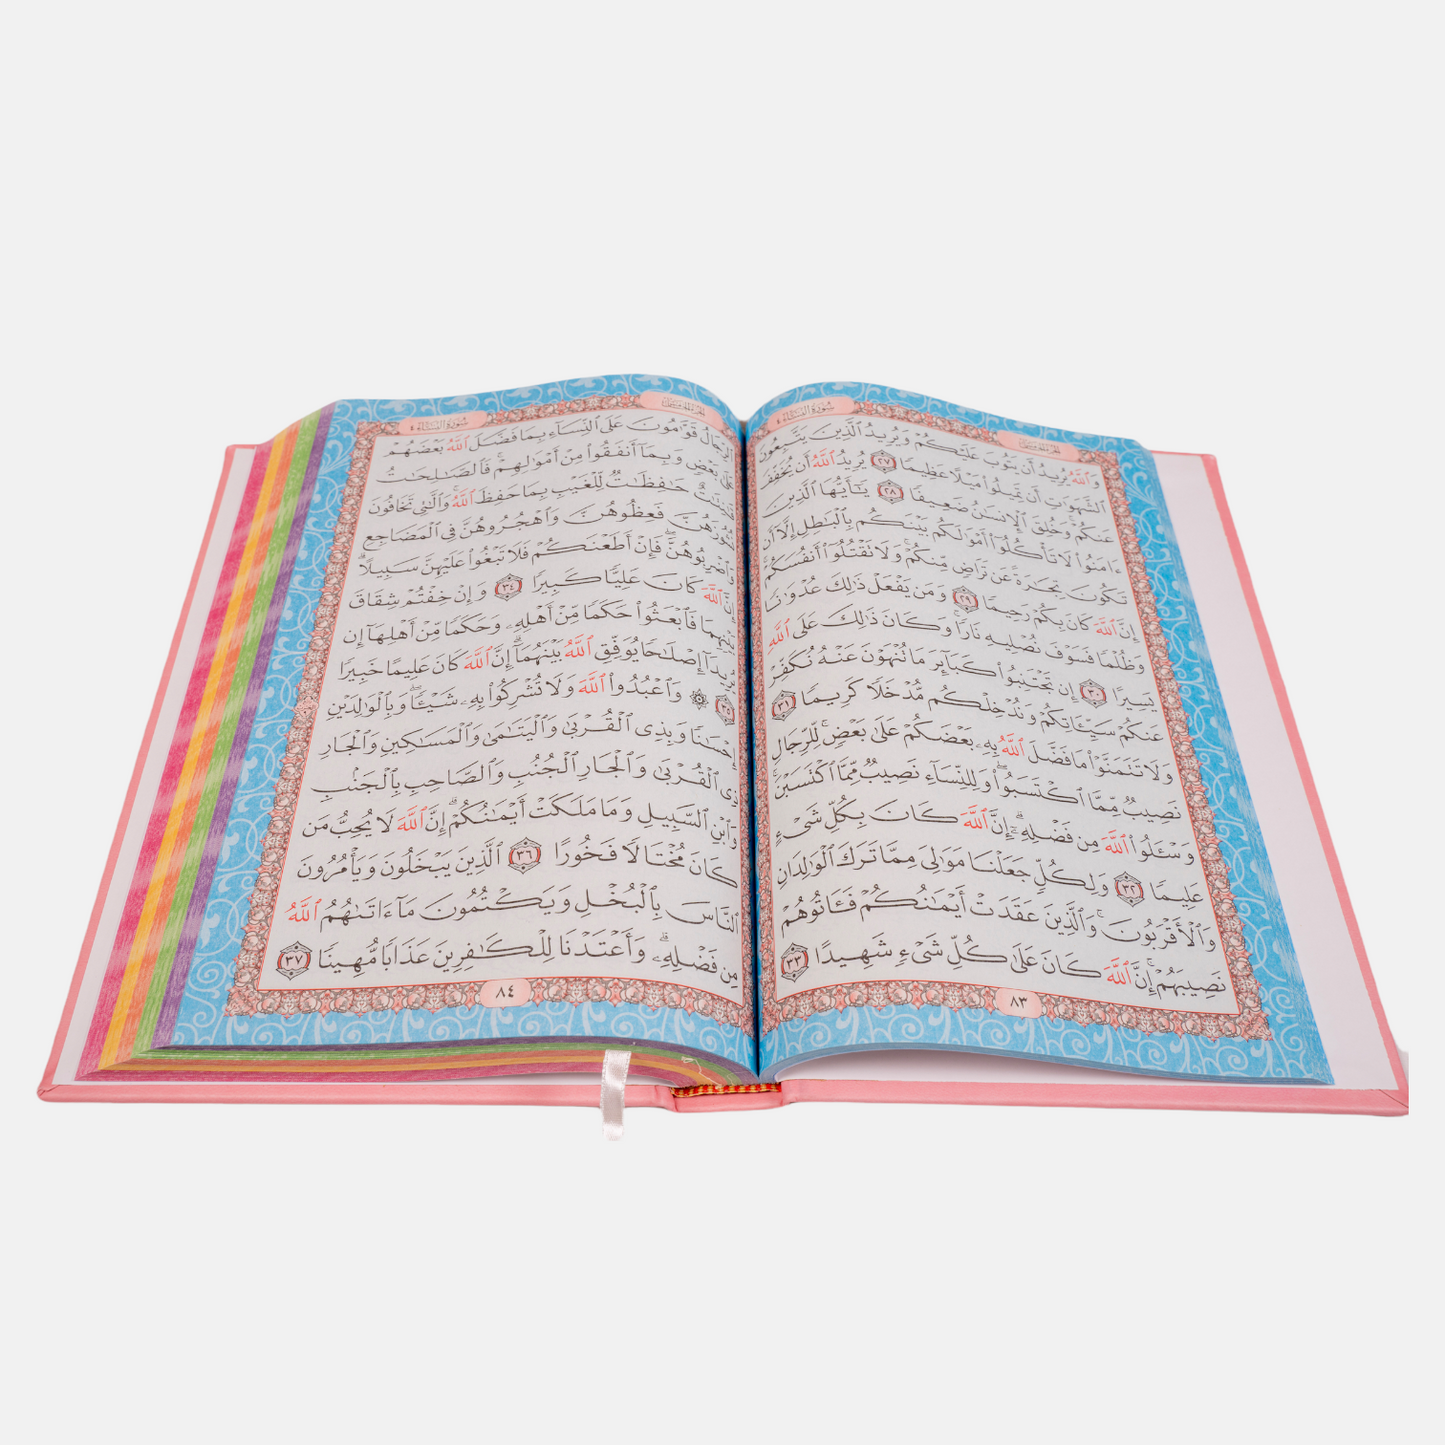 سُورَةُ النِّسَاءِ ٤
وَٱللَّهُ يُرِيدُ أَن يَتُوبَ عَلَيْكُمْ وَيُرِيدُ ٱلَّذِينَ يَتَّبِعُونَ
ٱلشَّهَوَٰتِ أَن تَمِيلُوا۟ مَيْلًا عَظِيمًا ٢٧ يُرِيدُ ٱللَّهُ أَن يُخَفِّفَ
عَنكُمْ ۚ وَخُلِقَ ٱلْإِنسَٰنُ ضَعِيفًا ٢٨ يَٰٓأَيُّهَا ٱلَّذِينَ
ءَامَنُوا۟ لَا تَأْكُلُوٓا۟ أَمْوَٰلَكُم بَيْنَكُم بِٱلْبَٰطِلِ إِلَّآ أَن
تَكُونَ تِجَٰرَةً عَن تَرَاضٍ مِّنكُمْ ۚ وَلَا تَقْتُلُوٓا۟ أَنفُسَكُمْ ۚ
إِنَّ ٱللَّهَ كَانَ بِكُمْ رَحِيمًا ٢٩ وَمَن يَفْعَلْ ذَٰلِكَ عُدْوَٰنًا
وَظُلْمًا فَسَوْفَ نُصْلِيهِ نَارًا ۚ وَكَانَ ذَٰلِكَ عَلَى ٱللَّهِ
يَسِيرًا ٣٠ إِن تَجْتَنِبُوا۟ كَبَآئِرَ مَا تُنْهَوْنَ عَنْهُ نُكَفِّرْ
عَنكُمْ سَيِّـَٔاتِكُمْ وَنُدْخِلْكُم مُّدْخَلًا كَرِيمًا ٣١
وَلَا تَتَمَنَّوْا۟ مَا فَضَّلَ ٱللَّهُ بِهِۦ بَعْضَكُمْ عَلَىٰ بَعْضٍ ۚ لِّلرِّجَالِ
نَصِيبٌ مِّمَّا ٱكْتَسَبُوا۟ ۖ وَلِلنِّسَآءِ نَصِيبٌ مِّمَّا ٱكْتَسَبْنَ ۚ
وَسْـَٔلُوا۟ ٱللَّهَ مِن فَضْلِهِۦٓ ۗ إِنَّ ٱللَّهَ كَانَ بِكُلِّ شَىْءٍ
عَلِيمًا ٣٢ وَلِكُلٍّ جَعَلْنَا مَوَٰلِىَ مِمَّا تَرَكَ ٱلْوَٰلِدَانِ
وَٱلْأَقْرَبُونَ ۚ وَٱلَّذِينَ عَقَدَتْ أَيْمَٰنُكُمْ فَـَٔاتُوهُمْ
نَصِيبَهُمْ ۚ إِنَّ ٱللَّهَ كَانَ عَلَىٰ كُلِّ شَىْءٍ شَهِيدًا ٣٣
٨٣
سُورَةُ النِّسَاءِ ٤
ٱلرِّجَالُ قَوَّٰمُونَ عَلَى ٱلنِّسَآءِ بِمَا فَضَّلَ ٱللَّهُ بَعْضَهُمْ
عَلَىٰ بَعْضٍ وَبِمَآ أَنفَقُوا۟ مِنْ أَمْوَٰلِهِمْ ۚ فَٱلصَّٰلِحَٰتُ
قَٰنِتَٰتٌ حَٰفِظَٰتٌ لِّلْغَيْبِ بِمَا حَفِظَ ٱللَّهُ ۚ وَٱلَّٰتِى تَخَافُونَ
نُشُوزَهُنَّ فَعِظُوهُنَّ وَٱهْجُرُوهُنَّ فِى ٱلْمَضَاجِعِ
وَٱضْرِبُوهُنَّ ۖ فَإِنْ أَطَعْنَكُمْ فَلَا تَبْغُوا۟ عَلَيْهِنَّ سَبِيلًا ۗ
إِنَّ ٱللَّهَ كَانَ عَلِيًّا كَبِيرًا ٣٤ وَإِنْ خِفْتُمْ شِقَاقَ
بَيْنِهِمَا فَٱبْعَثُوا۟ حَكَمًا مِّنْ أَهْلِهِۦ وَحَكَمًا مِّنْ أَهْلِهَآ إِن
يُرِيدَآ إِصْلَٰحًا يُوَفِّقِ ٱللَّهُ بَيْنَهُمَآ ۗ إِنَّ ٱللَّهَ كَانَ عَلِيمًا خَبِيرًا
٣٥ ۞ وَٱعْبُدُوا۟ ٱللَّهَ وَلَا تُشْرِكُوا۟ بِهِۦ شَيْـًٔا ۖ وَبِٱلْوَٰلِدَيْنِ
إِحْسَٰنًا وَبِذِى ٱلْقُرْبَىٰ وَٱلْيَتَٰمَىٰ وَٱلْمَسَٰكِينِ وَٱلْجَارِ
ذِى ٱلْقُرْبَىٰ وَٱلْجَارِ ٱلْجُنُبِ وَٱلصَّاحِبِ بِٱلْجَنۢبِ
وَٱبْنِ ٱلسَّبِيلِ وَمَا مَلَكَتْ أَيْمَٰنُكُمْ ۗ إِنَّ ٱللَّهَ لَا يُحِبُّ مَن
كَانَ مُخْتَالًا فَخُورًا ٣٦ ٱلَّذِينَ يَبْخَلُونَ وَيَأْمُرُونَ
ٱلنَّاسَ بِٱلْبُخْلِ وَيَكْتُمُونَ مَآ ءَاتَىٰهُمُ ٱللَّهُ
مِن فَضْلِهِۦ ۗ وَأَعْتَدْنَا لِلْكَٰفِرِينَ عَذَابًا مُّهِينًا ٣٧
٨٤